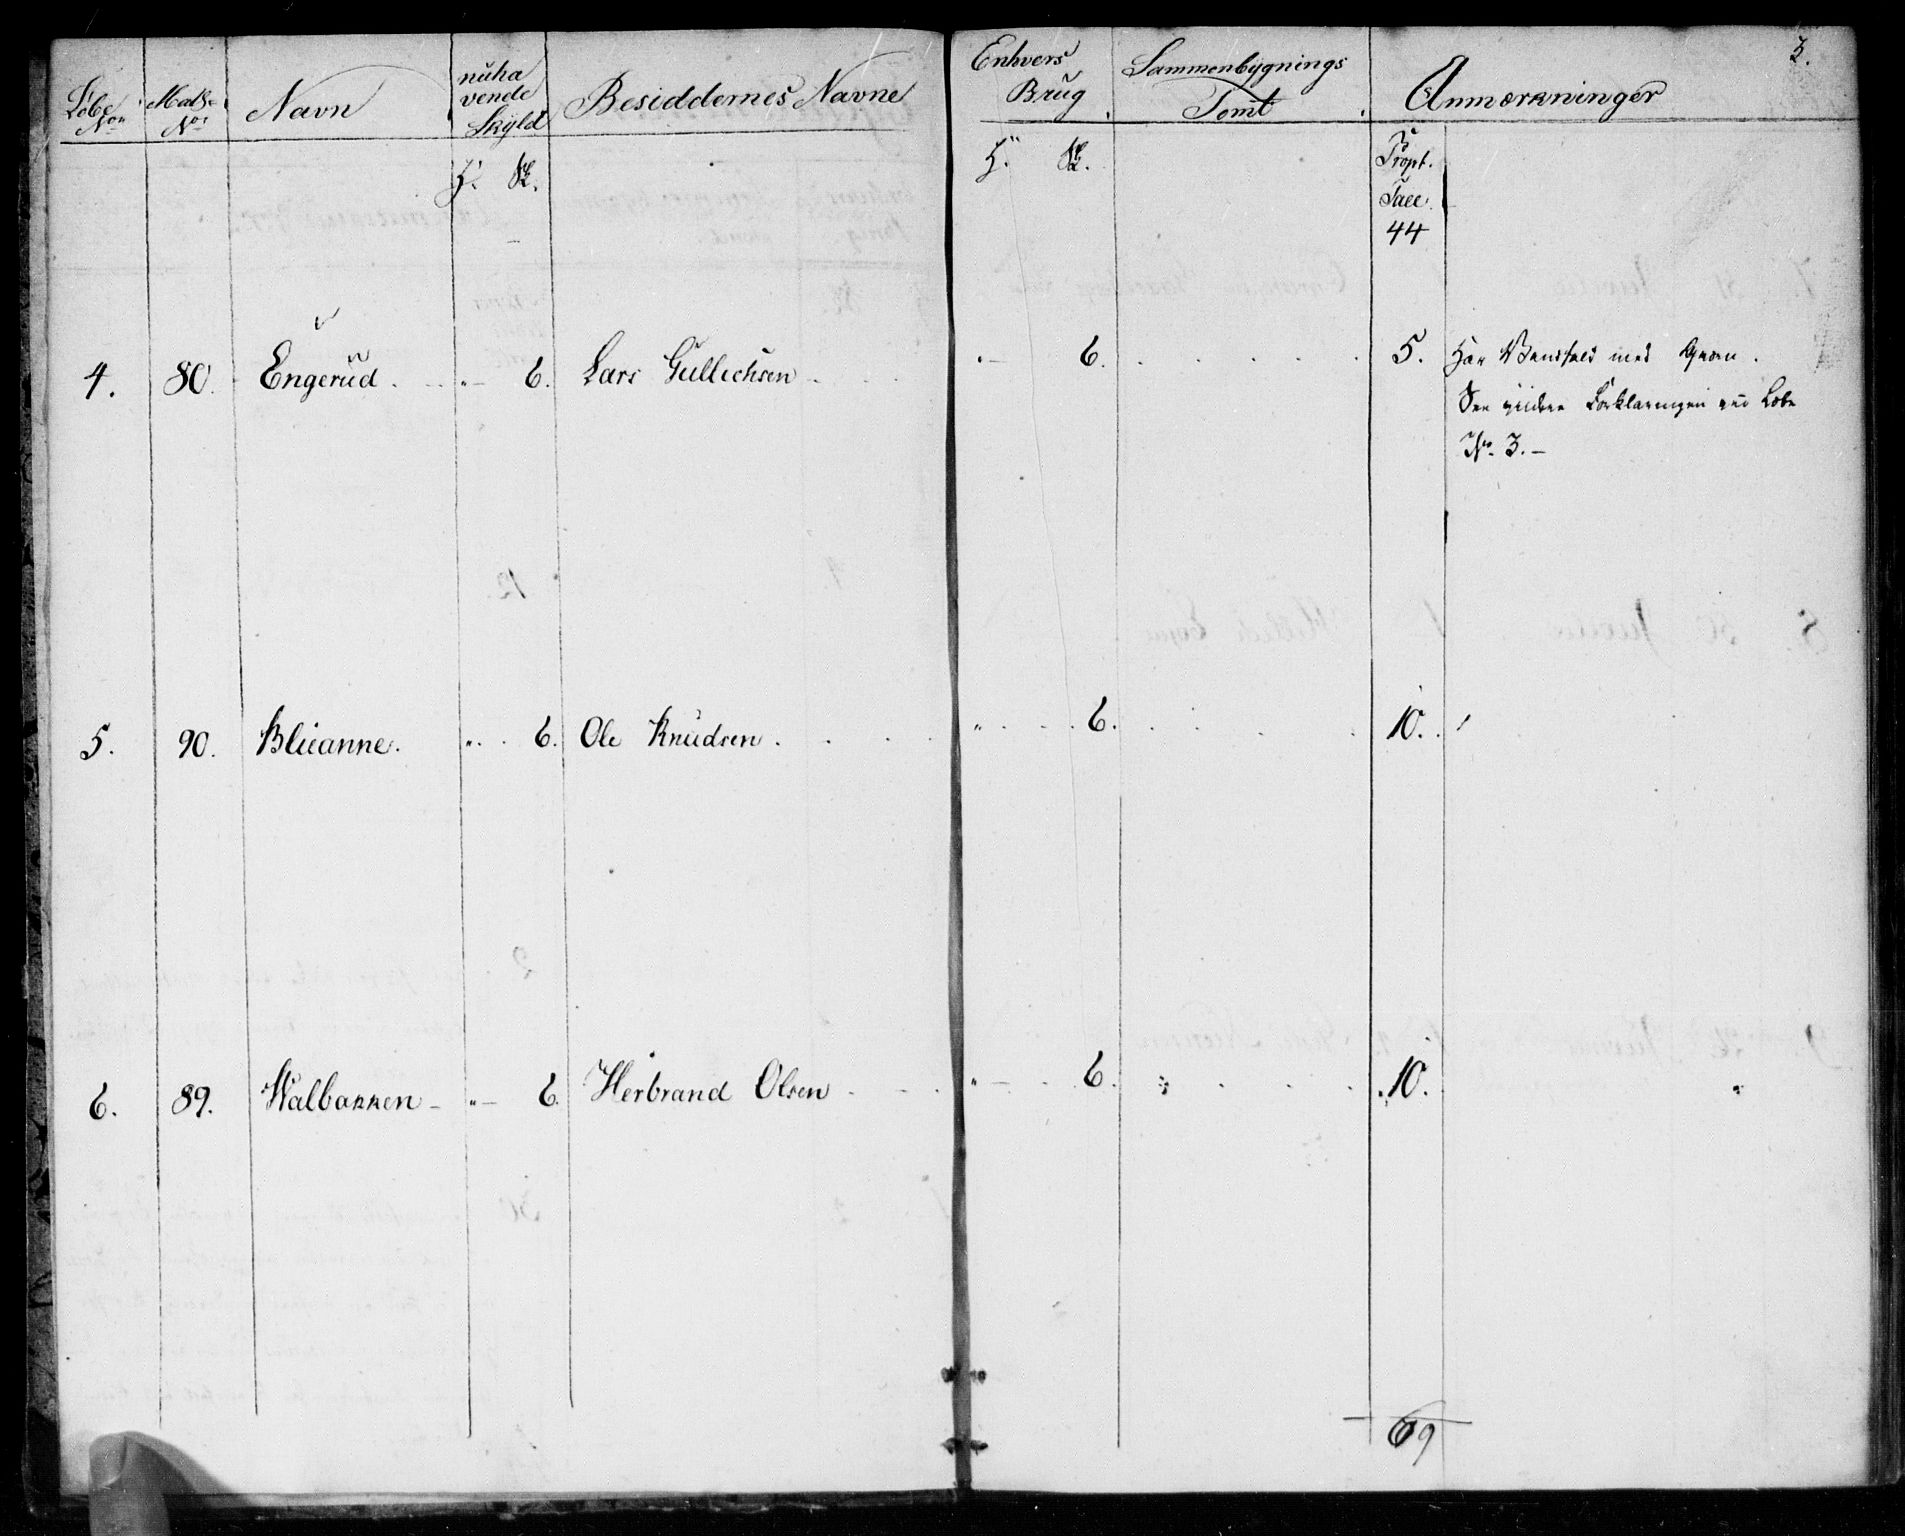 3.
Løbe Nor Mats. Nor Navn nuhavende Skyld Besiddernes Navne Enhvers Brug. Sammenbygnings Tomt. Anmærkninger
H. Sk. H. Sk. Propt. Tall. 44
4. 80. Engerud. „ 6. Lars Gullichsen 6. 5. Har med
See Forklaringen Løbe
No. 3.
5. 90. „ 6. Ole Knudsen. „ 6. 10.
6. 89. Walbakken „ 6. Herbrand Olsen „ 6. 10. „
69